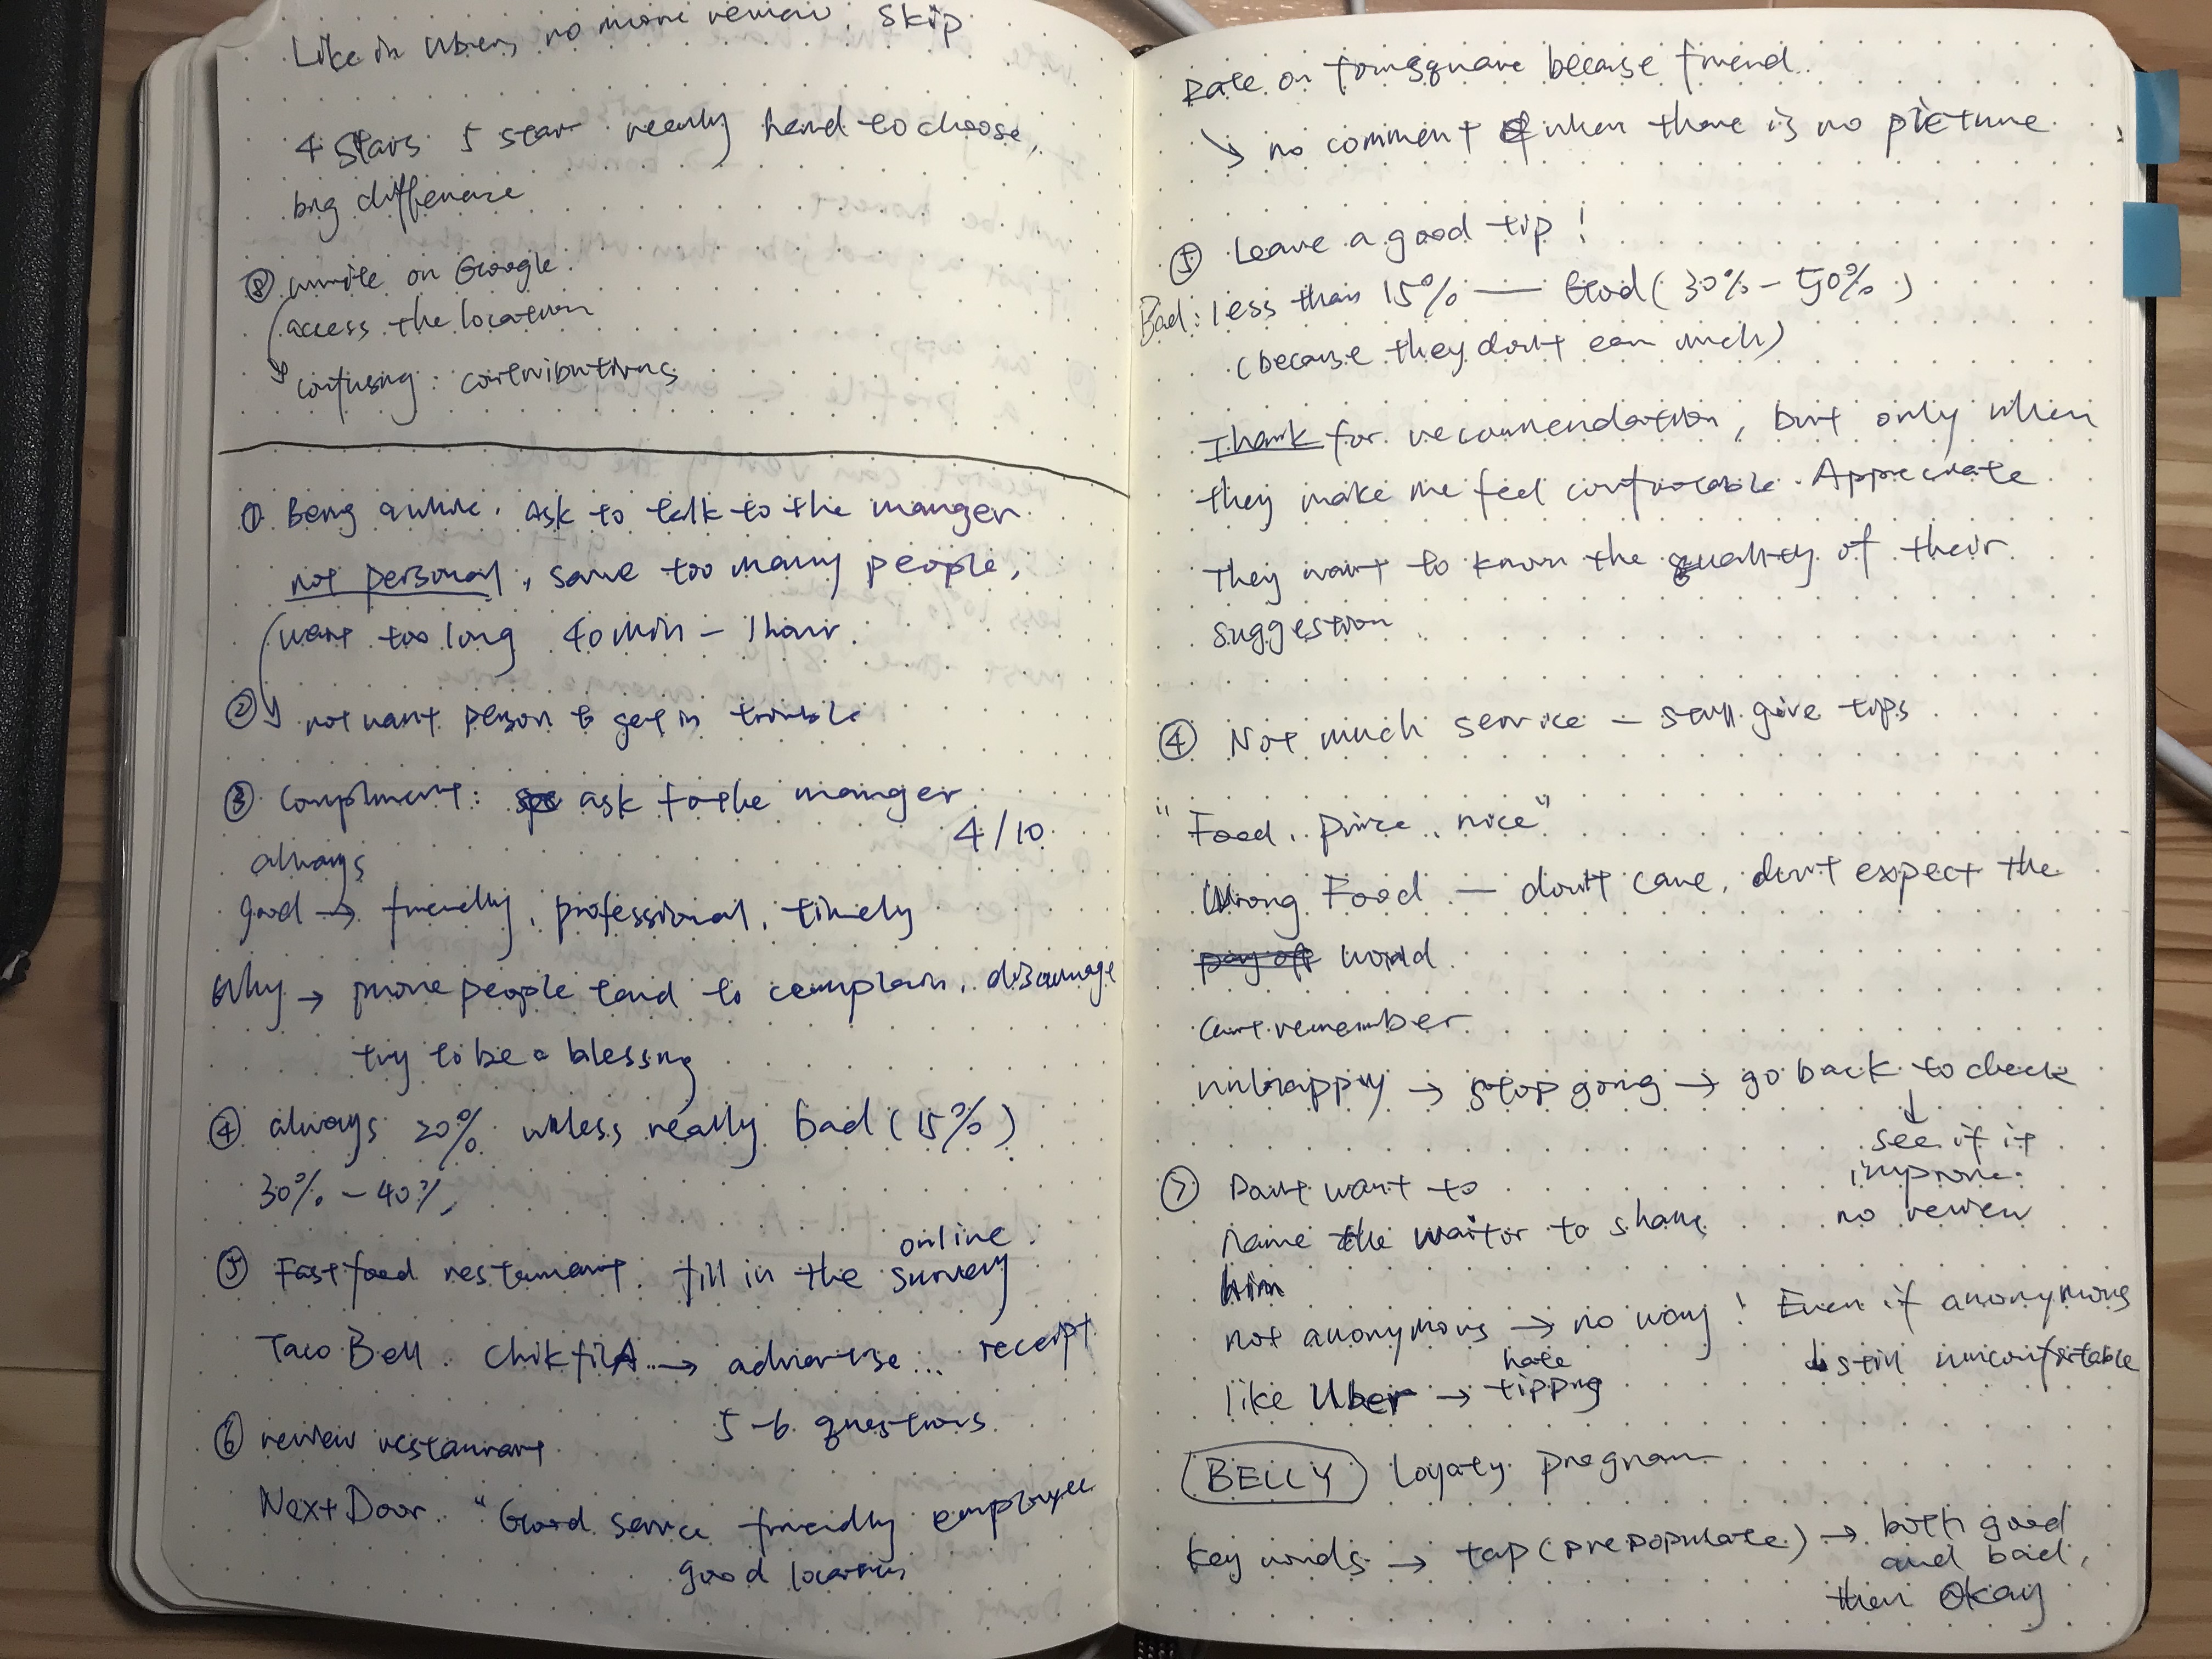 Like in Uber, no more review, skip
4 stars 5 star really hard to choose,
big difference
⑧ write on Google
access the location
confusing: contributions
① Being a while. ask to talk to the manger
not personal, some too many people,
wait too long 40 min - 1 hour.
② not want person to get in trouble
③ Compliment: ask to the manger
4/10
always
good → friendly, professional, timely
Why → more people tend to complain, discourage
try to be a blessing
④ always 20% unless really bad (15%)
30% - 40%
online
⑤ Fast food restaurant. fill in the survey
Taco Bell. ChikfilA → advertise... receipt
5-6 questions
⑥ review restaurant
Next Door. "Good service friendly employee
good location
Rate on foursquare because friend.
↘ no comment when there is no picture
⑤ Leave a good tip!
Bad: less than 15% — Good (30% - 50%)
(because they don't earn much)
Thank for recommendation, but only when
they make me feel comfortable. Appreciate
They want to know the quality of their
suggestion
④ Not much service - still give tips
"Food, price, nice"
Wrong Food — don't care, don't expect the
world
can't remember
unhappy → stop going → go back to check
↓
see if it
improve.
no review
⑦ Don't want to
name the waitor to shame
him
not anonymous → no way! Even if anonymous
still uncomfortable
hate
like Uber → tipping
BELLY Loyaty program
Key words → tap (prepopulate) → both good
and bad,
then okay